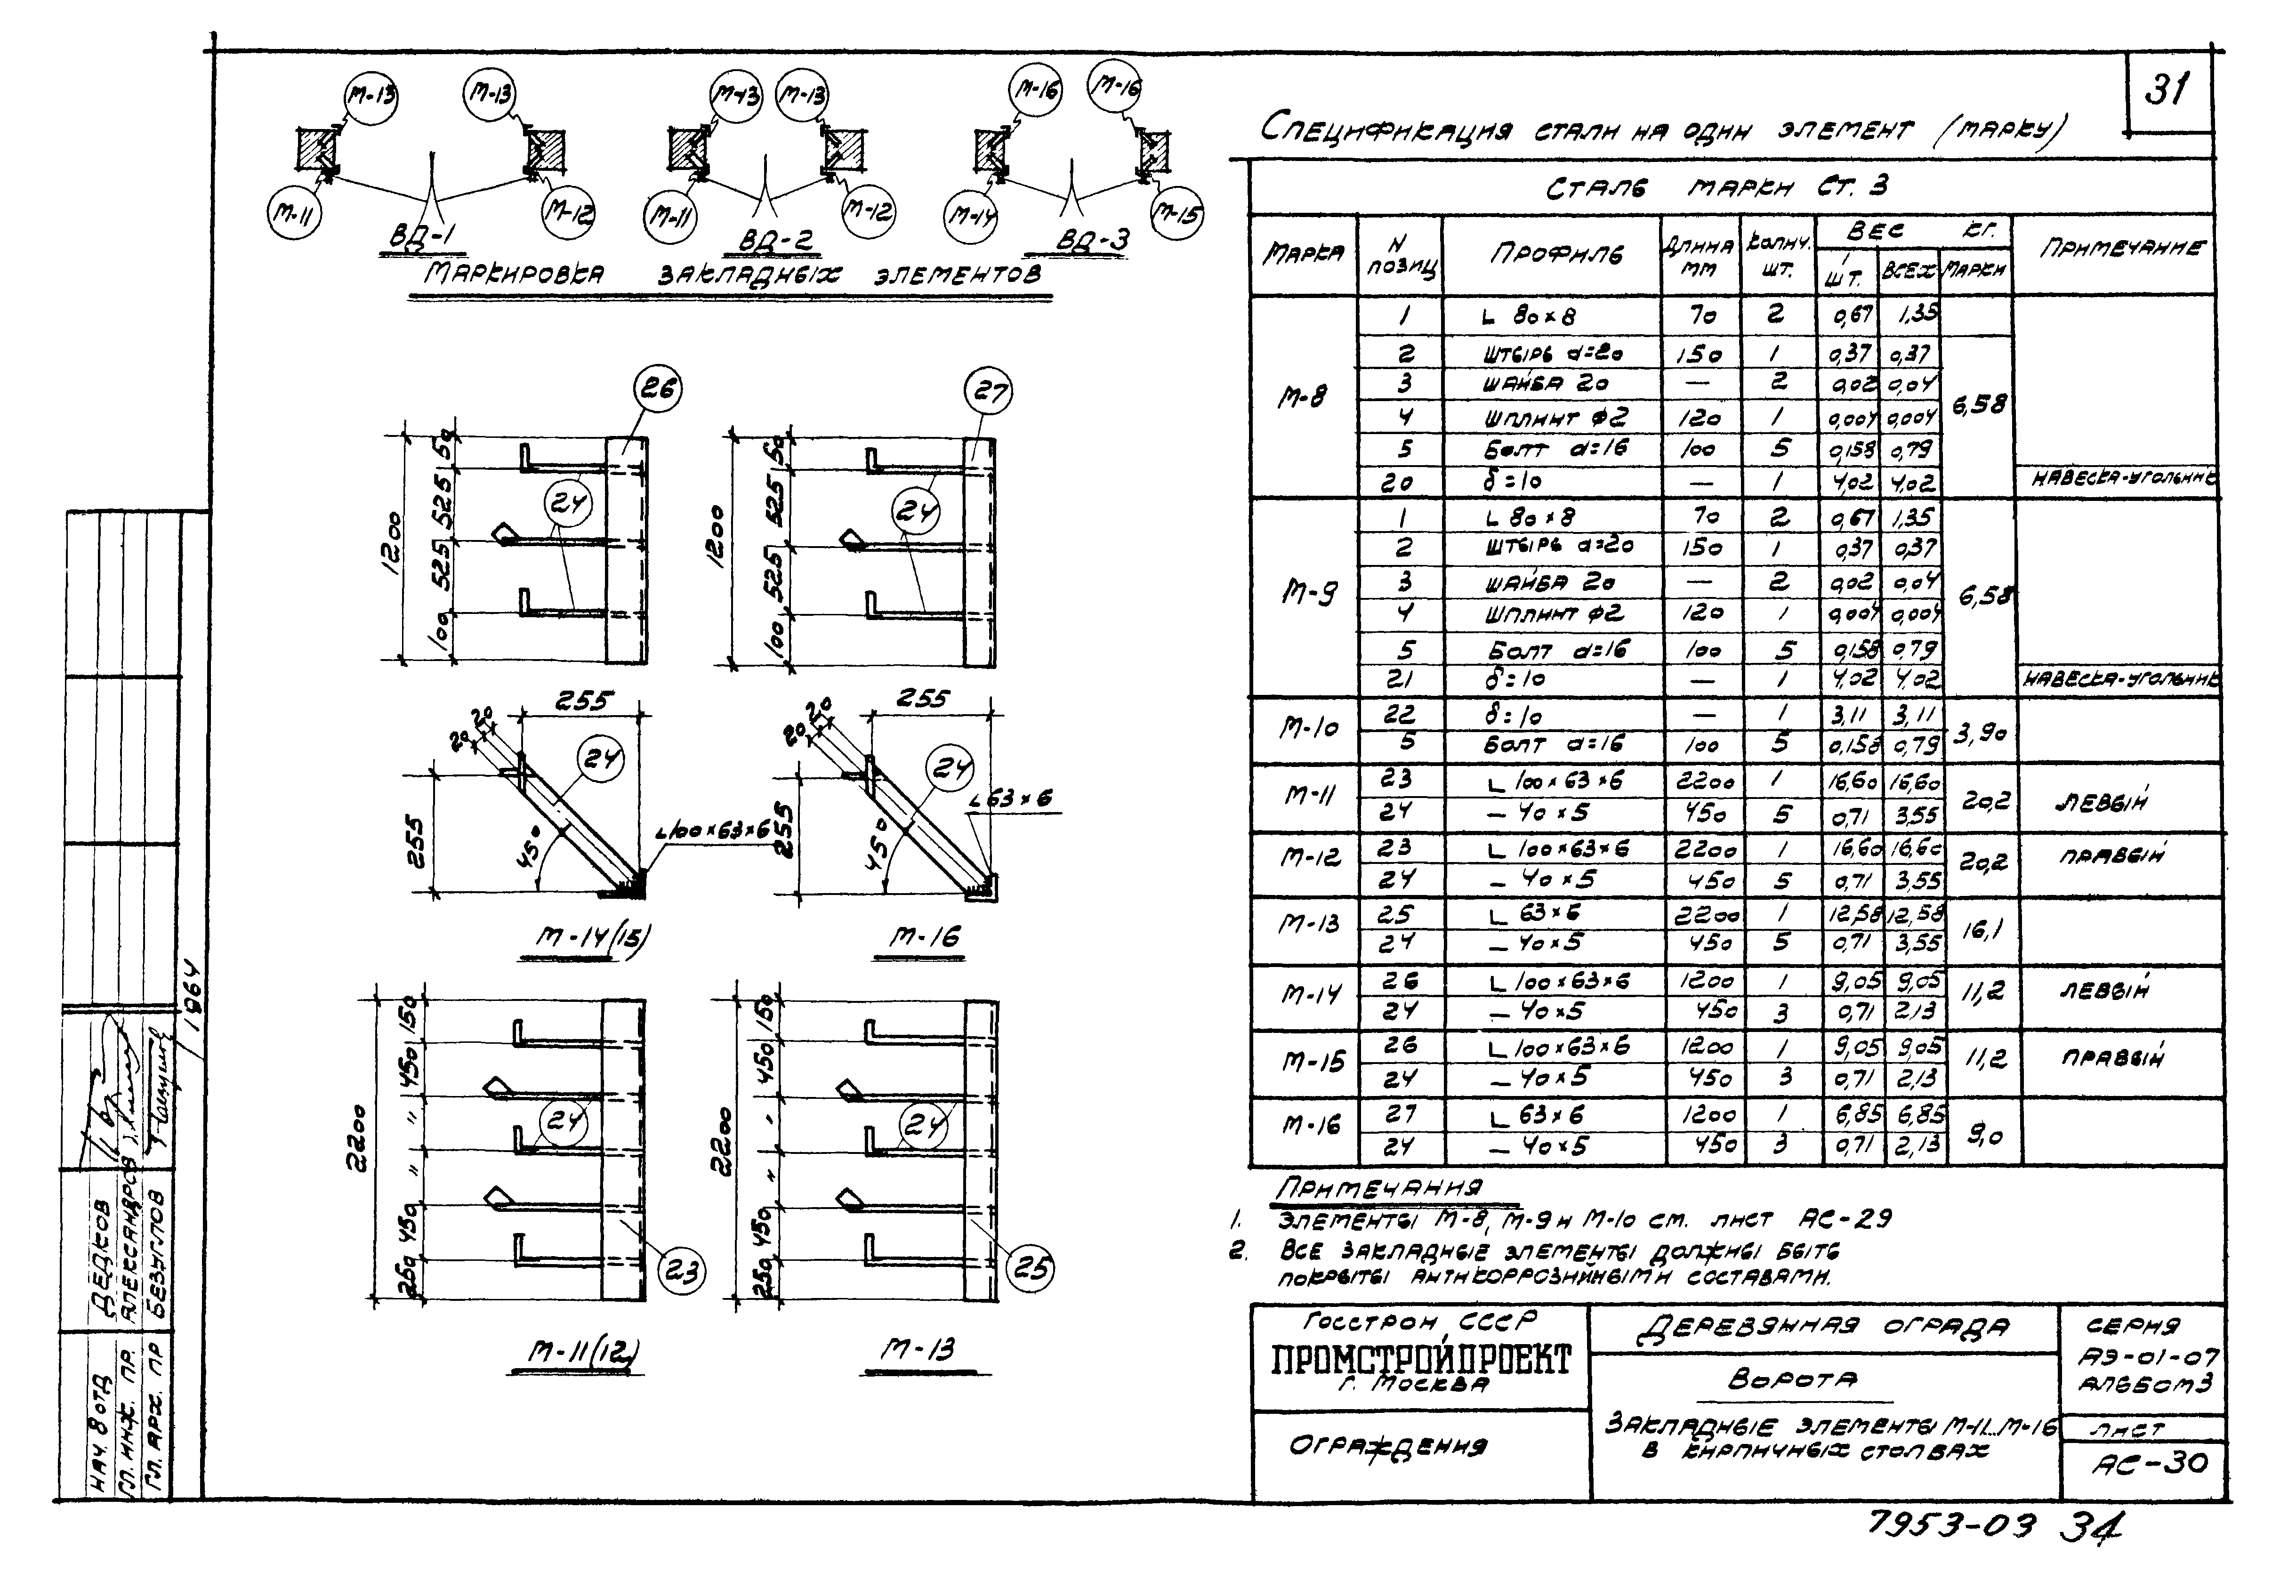 31
М-13 М-13 М-13 М-13 М-16 М-16
М-11 М-12 М-11 М-12 М-14 М-15
ВД-1 ВД-2 ВД-3
Маркировка закладных элементов
26 27
50 525 525 100 1200
24
50 525 525 100 1200
24
255 255
20 20 24 255 45° L100×63×6
20 20 24 255 45° L63×6
М-14(15) М-16
150 450 " " 450 250 2200
24 23
150 450 " " 450 250 2200
24 25
М-11(12) М-13
Спецификация стали на один элемент (марку)
Сталь марки Ст. 3
Марка N позиц Профиль Длина мм Колич. шт. Вес кг. Примечание
1 шт. Всех Марки
М-8 6,58
1 L 80×8 70 2 0,67 1,35
2 Штырь d=20 150 1 0,37 0,37
3 Шайба 20 — 2 0,02 0,04
4 Шплинт ф2 120 1 0,004 0,004
5 Болт d=16 100 5 0,158 0,79
20 δ=10 — 1 4,02 4,02 Навеска-угольник
М-9 6,58
1 L 80×8 70 2 0,67 1,35
2 Штырь d=20 150 1 0,37 0,37
3 Шайба 20 — 2 0,02 0,04
4 Шплинт ф2 120 1 0,004 0,004
5 Болт d=16 100 5 0,158 0,79
21 δ=10 — 1 4,02 4,02 Навеска-угольник
М-10 3,90
22 δ=10 — 1 3,11 3,11
5 Болт d=16 100 5 0,158 0,79
М-11 20,2 Левый
23 L 100×63×6 2200 1 16,60 16,60
24 – 40×5 450 5 0,71 3,55
М-12 20,2 Правый
23 L 100×63×6 2200 1 16,60 16,60
24 – 40×5 450 5 0,71 3,55
М-13 16,1
25 L 63×6 2200 1 12,58 12,58
24 – 40×5 450 5 0,71 3,55
М-14 11,2 Левый
26 L 100×63×6 1200 1 9,05 9,05
24 – 40×5 450 3 0,71 2,13
М-15 11,2 Правый
26 L 100×63×6 1200 1 9,05 9,05
24 – 40×5 450 3 0,71 2,13
М-16 9,0
27 L 63×6 1200 1 6,85 6,85
24 – 40×5 450 3 0,71 2,13
Примечания
1. Элементы М-8, М-9 и М-10 см. лист АС-29
2. Все закладные элементы должны быть
покрыты антикоррозийными составами.
Госстрой СССР
ПРОМСТРОЙПРОЕКТ
г. Москва
Ограждения
Деревянная ограда
Ворота
Закладные элементы М-11...М-16
в кирпичных столбах
Серия
АЭ-01-07
Альбом 3
Лист
АС-30
7953-03 34
1964
Нач. 8 отд Дедков
Гл. инж. пр. Александров
Гл. арх. пр Безуглов